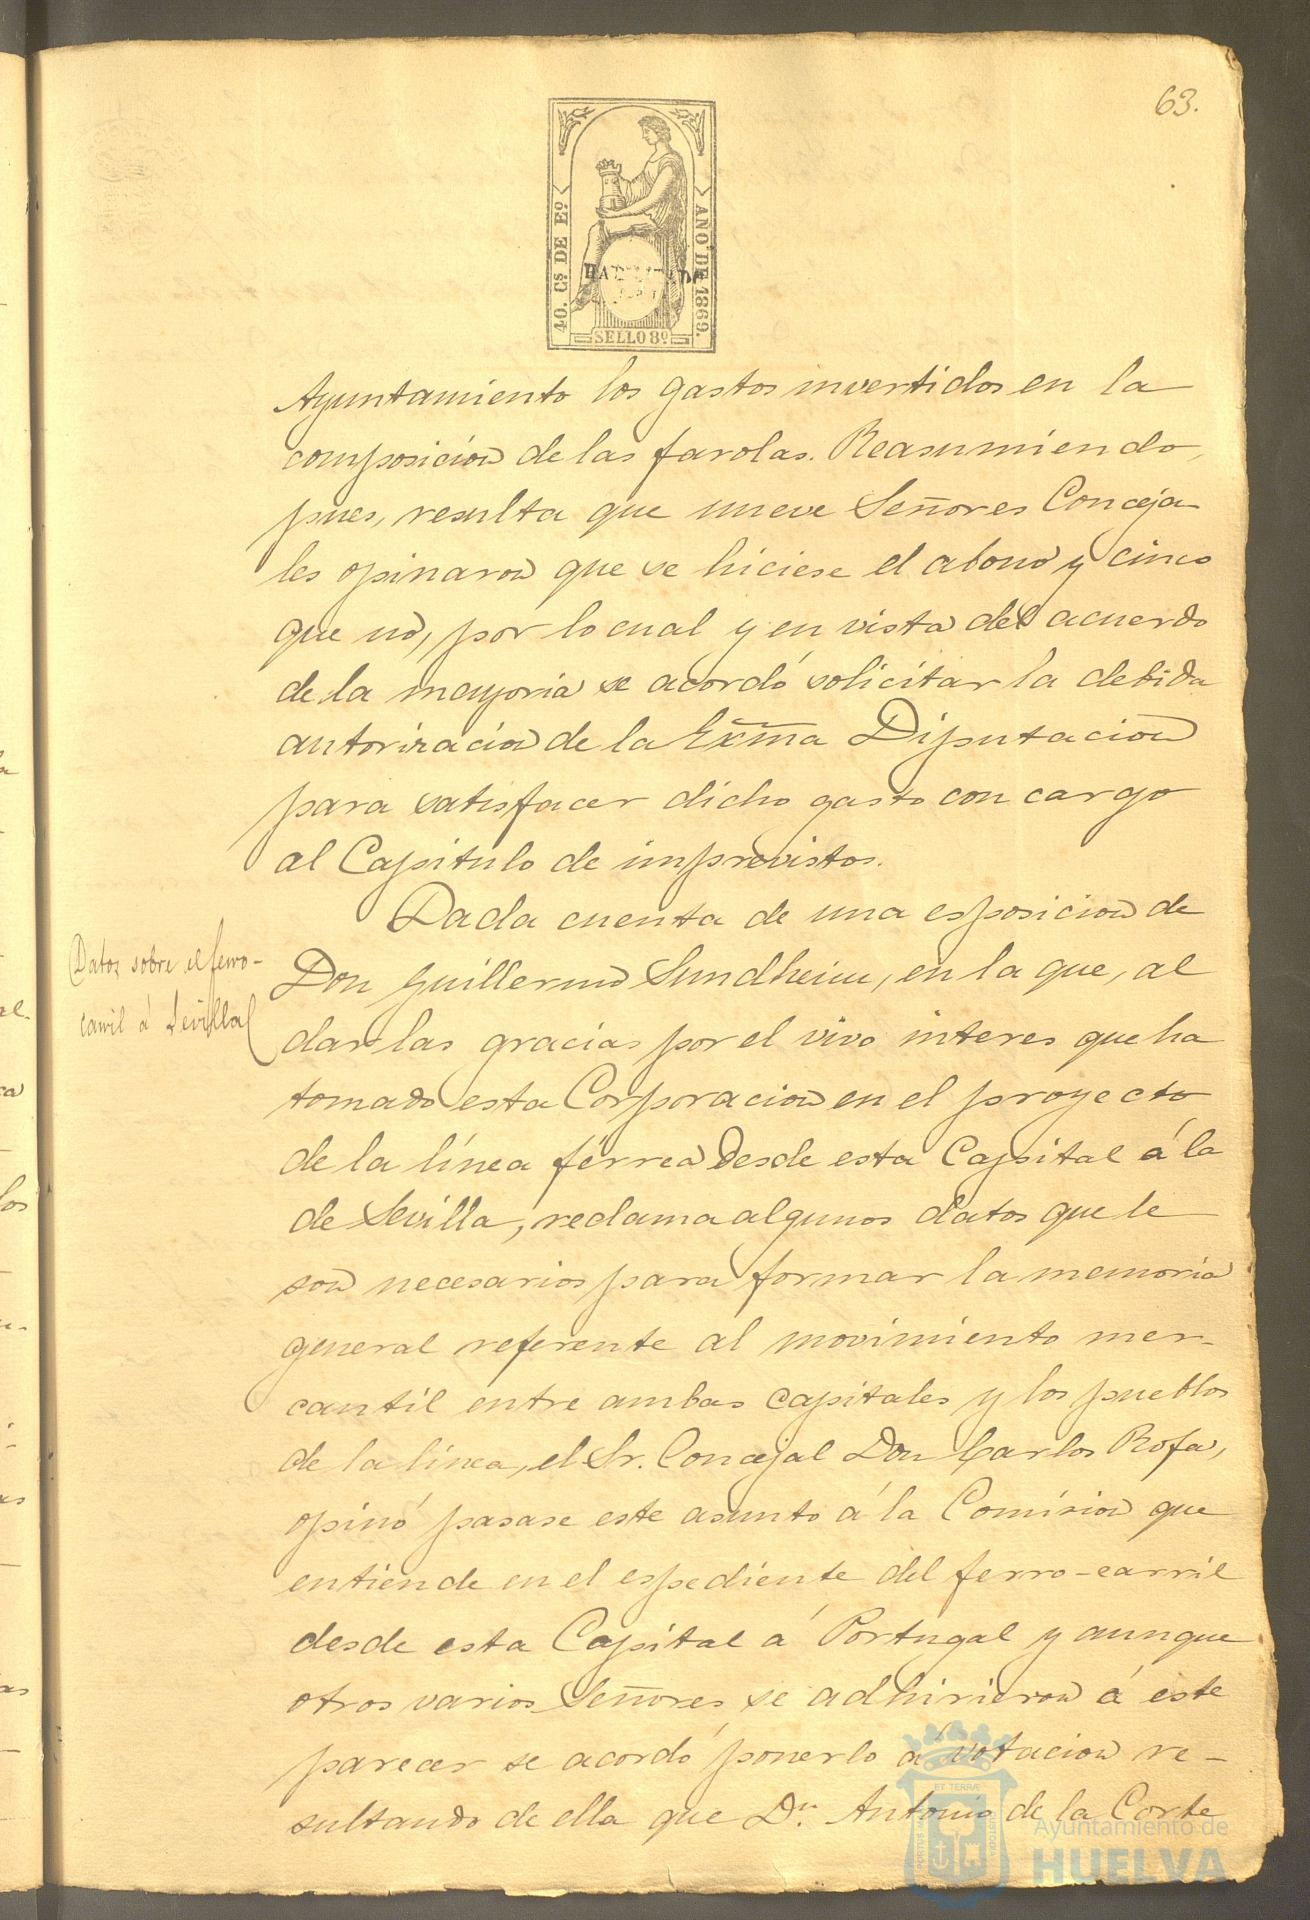 63.
40. Cs DE Eº
AÑO DE 1869.
SELLO 8º
Ayuntamiento los gastos invertidos en la
composicion de las farolas. Reasumiendo,
pues, resulta que nueve Señores Conceja-
les opinaron que se hiciese el abono y cinco
que nó, por lo cual y en vista del acuerdo
de la mayoria se acordó solicitar la debida
autorizacion de la Exma Diputacion
para satisfacer dicho gasto con cargo
al Capitulo de imprevistos.
Datos sobre el ferro-
carril á Sevilla
Dada cuenta de una esposicion de
Don Guillermo Sundheim, en la que, al
dar las gracias por el vivo interes que ha
tomado esta Corporacion en el proyecto
de la línea férrea desde esta Capital á la
de Sevilla, reclama algunos datos que le
son necesarios para formar la memoria
general referente al movimiento mer-
cantil entre ambas capitales y los pueblos
de la línea, el Sr. Concejal Don Carlos Rofa,
opinó pasase este asunto á la Comision que
entiende en el espediente del ferro-carril
desde esta Capital á Portugal y aunque
otros varios Señores se adhirieron á este
parecer se acordó ponerlo á votacion re-
sultando de ella que Dn. Antonio de la Corte
Ayuntamiento de
HUELVA